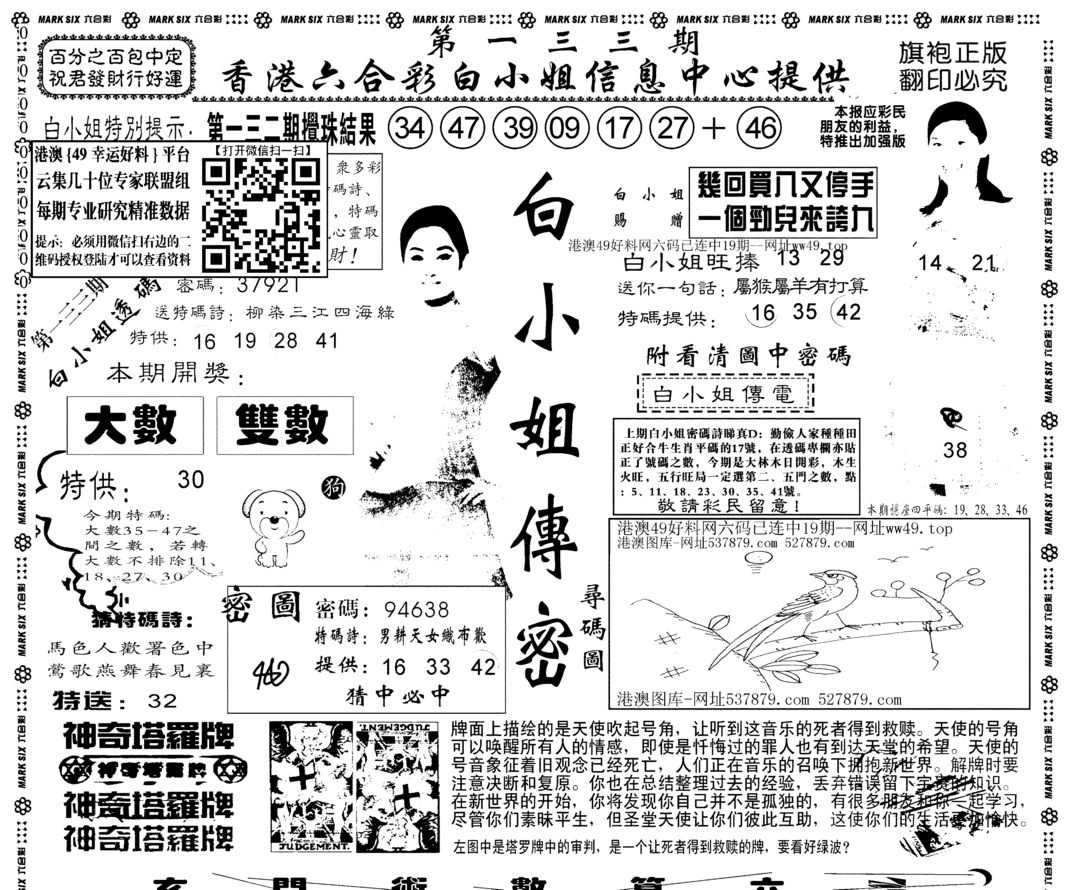 MARK SIX 六合彩 MARK SIX 六合彩 MARK SIX 六合彩 MARK SIX 六合彩 MARK SIX 六合彩 MARK SIX 六合彩 MARK SIX 六合彩 MARK SIX 六合彩
第一三三期
百分之百包中定
祝君發財行好運
香港六合彩白小姐信息中心提供
旗袍正版
翻印必究
白小姐特别提示:
第一三二期攪珠結果 34 47 39 09 17 27 + 46
本报应彩民
朋友的利益,
特推出加强版
港澳{49幸运好料}平台
云集几十位专家联盟组
每期专业研究精准数据
提示: 必须用微信扫右边的二
维码授权登陆才可以查看资料
【打开微信扫一扫】
衆多彩
碼詩、
,特碼
心靈取
財!
第一三三期
白小姐透碼
密碼: 37921
送特碼詩: 柳染三江四海綠
特供: 16 19 28 41
本期開獎:
大數
雙數
特供: 30
今期特碼:
大數35-47之
間之數,若轉
大數不排除11、
18、27、30
狗
猜特碼詩:
馬色人歡署色中
鶯歌燕舞春見裏
特送: 32
密圖
密碼: 94638
特碼詩: 男耕天女織布歡
提供: 16 33 42
猜中必中
白小姐傳密
尋碼圖
白小姐
賜贈
幾回買八又停手
一個勁兒來誇九
港澳49好料网六码已连中19期--网址ww49.top
白小姐旺捧 13 29
14 21
送你一句話: 屬猴屬羊有打算
特碼提供: 16 35 42
附看清圖中密碼
白小姐傳電
上期白小姐密碼詩睇真D: 勤儉人家種種田
正好合牛生肖平碼的17號,在透碼專欄亦貼
正了號碼之數,今期是大林木日開彩,木生
火旺,五行旺局一定選第二、五門之數,點
: 5、11、18、23、30、35、41號。
敬請彩民留意!
38
本期後座四平碼: 19, 28, 33, 46
港澳49好料网六码已连中19期--网址ww49.top
港澳图库-网址537879.com 527879.com
港澳图库-网址537879.com 527879.com
神奇塔羅牌
神奇塔羅牌
神奇塔羅牌
神奇塔羅牌
JUDGEMENT.
JUDGEMENT.
牌面上描绘的是天使吹起号角,让听到这音乐的死者得到救赎。天使的号角
可以唤醒所有人的情感,即使是忏悔过的罪人也有到达天堂的希望。天使的
号音象征着旧观念已经死亡,人们正在音乐的召唤下拥抱新世界。解牌时要
注意决断和复原。你也在总结整理过去的经验,丢弃错误留下宝贵的知识。
在新世界的开始,你将发现你自己并不是孤独的,有很多朋友和你一起学习,
尽管你们素昧平生,但圣堂天使让你们彼此互助,这使你们的生活更加愉快。
左图中是塔罗牌中的审判,是一个让死者得到救赎的牌,要看好绿波?